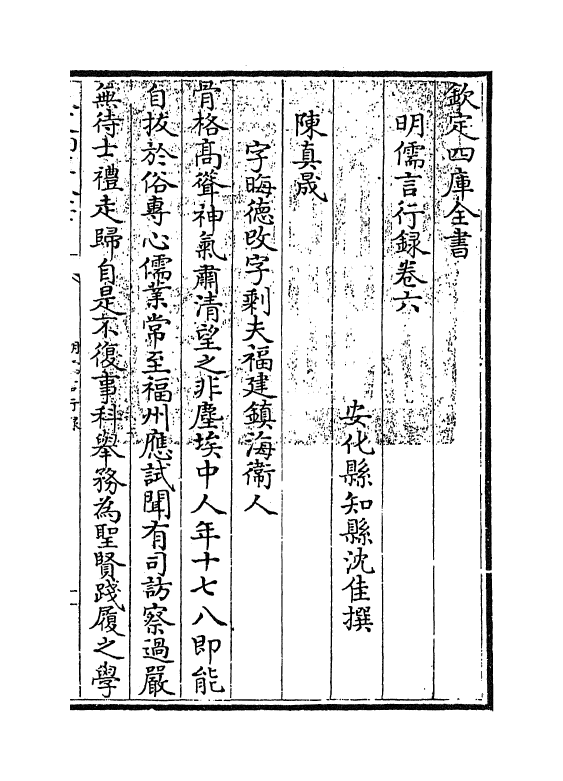 欽定四庫全書
明儒言行録卷六
安化縣知縣沈佳撰
陳真晟
字晦德改字剩夫福建鎮海衛人
骨格髙聳神氣肅清望之非塵埃中人年十七八即能
自拔於俗專心儒業常至福州應試聞有司訪察過嚴
無待士禮走歸自是不復事科舉務為聖賢踐履之學